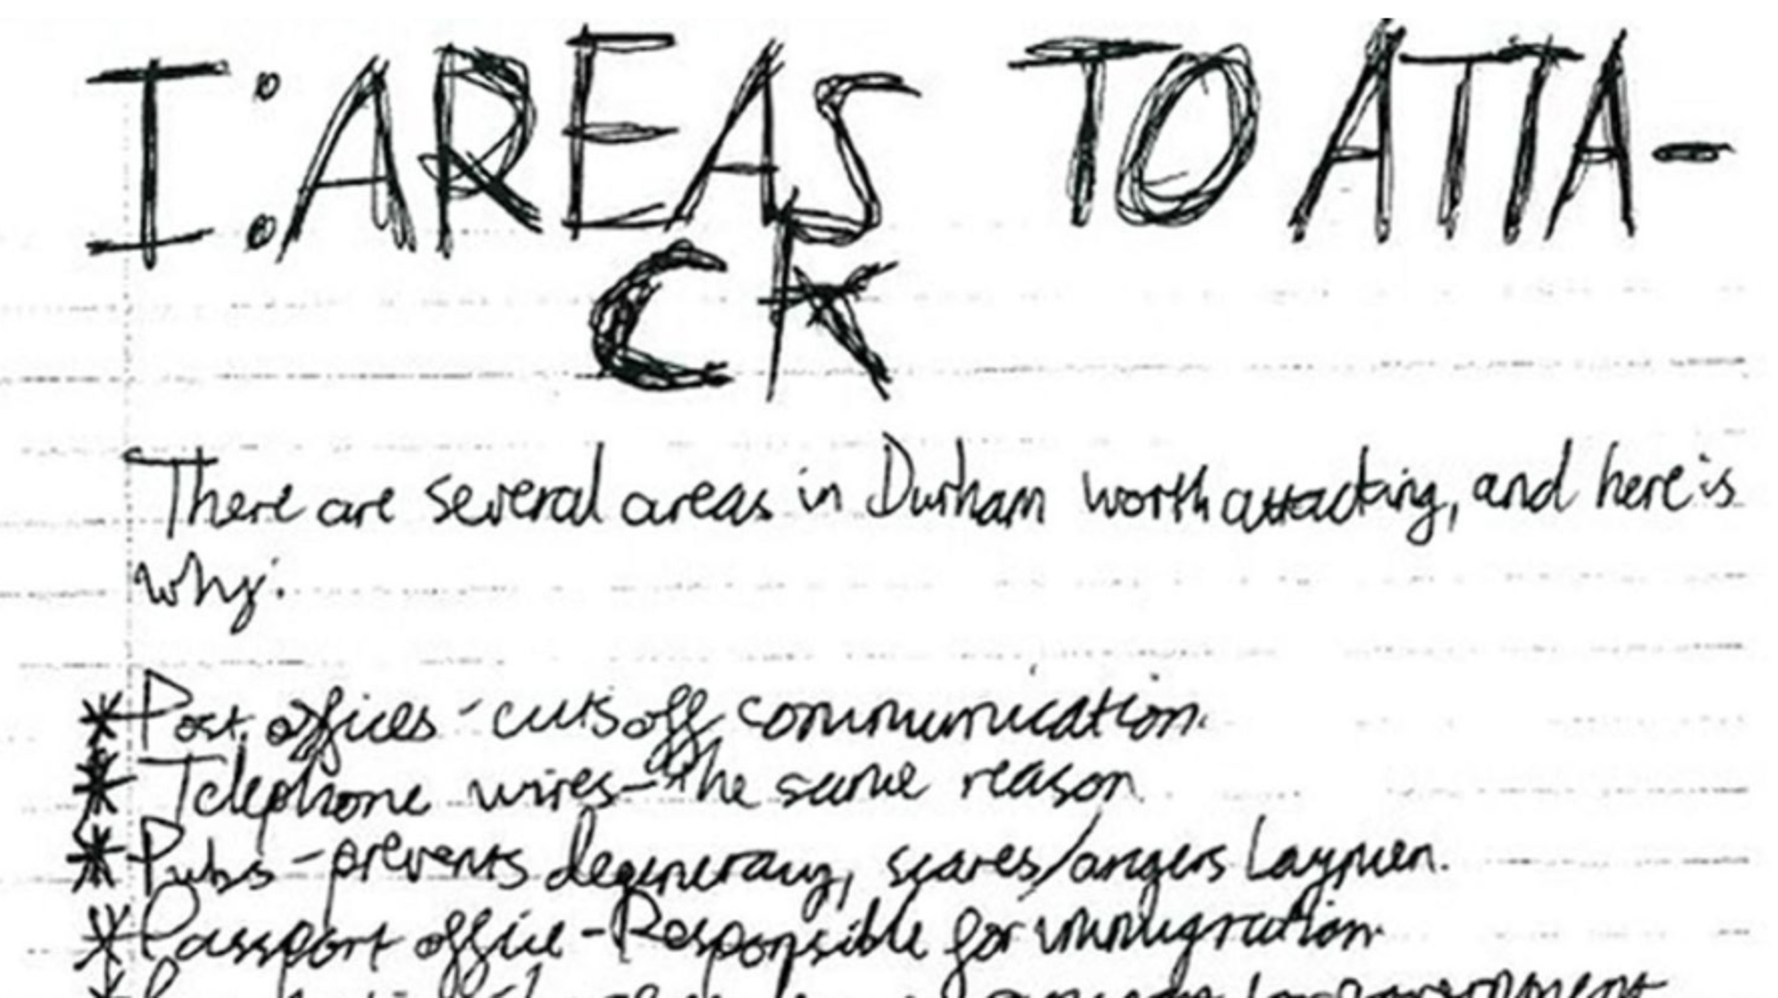 I: AREAS TO ATTA-
CK
There are several areas in Durham worth attacking, and here is
why:
* Post offices - cuts off communication.
* Telephone wires - the same reason
* Pubs - prevents degeneracy, scares/angers Laymen.
* Passport office - Responsible for immigration